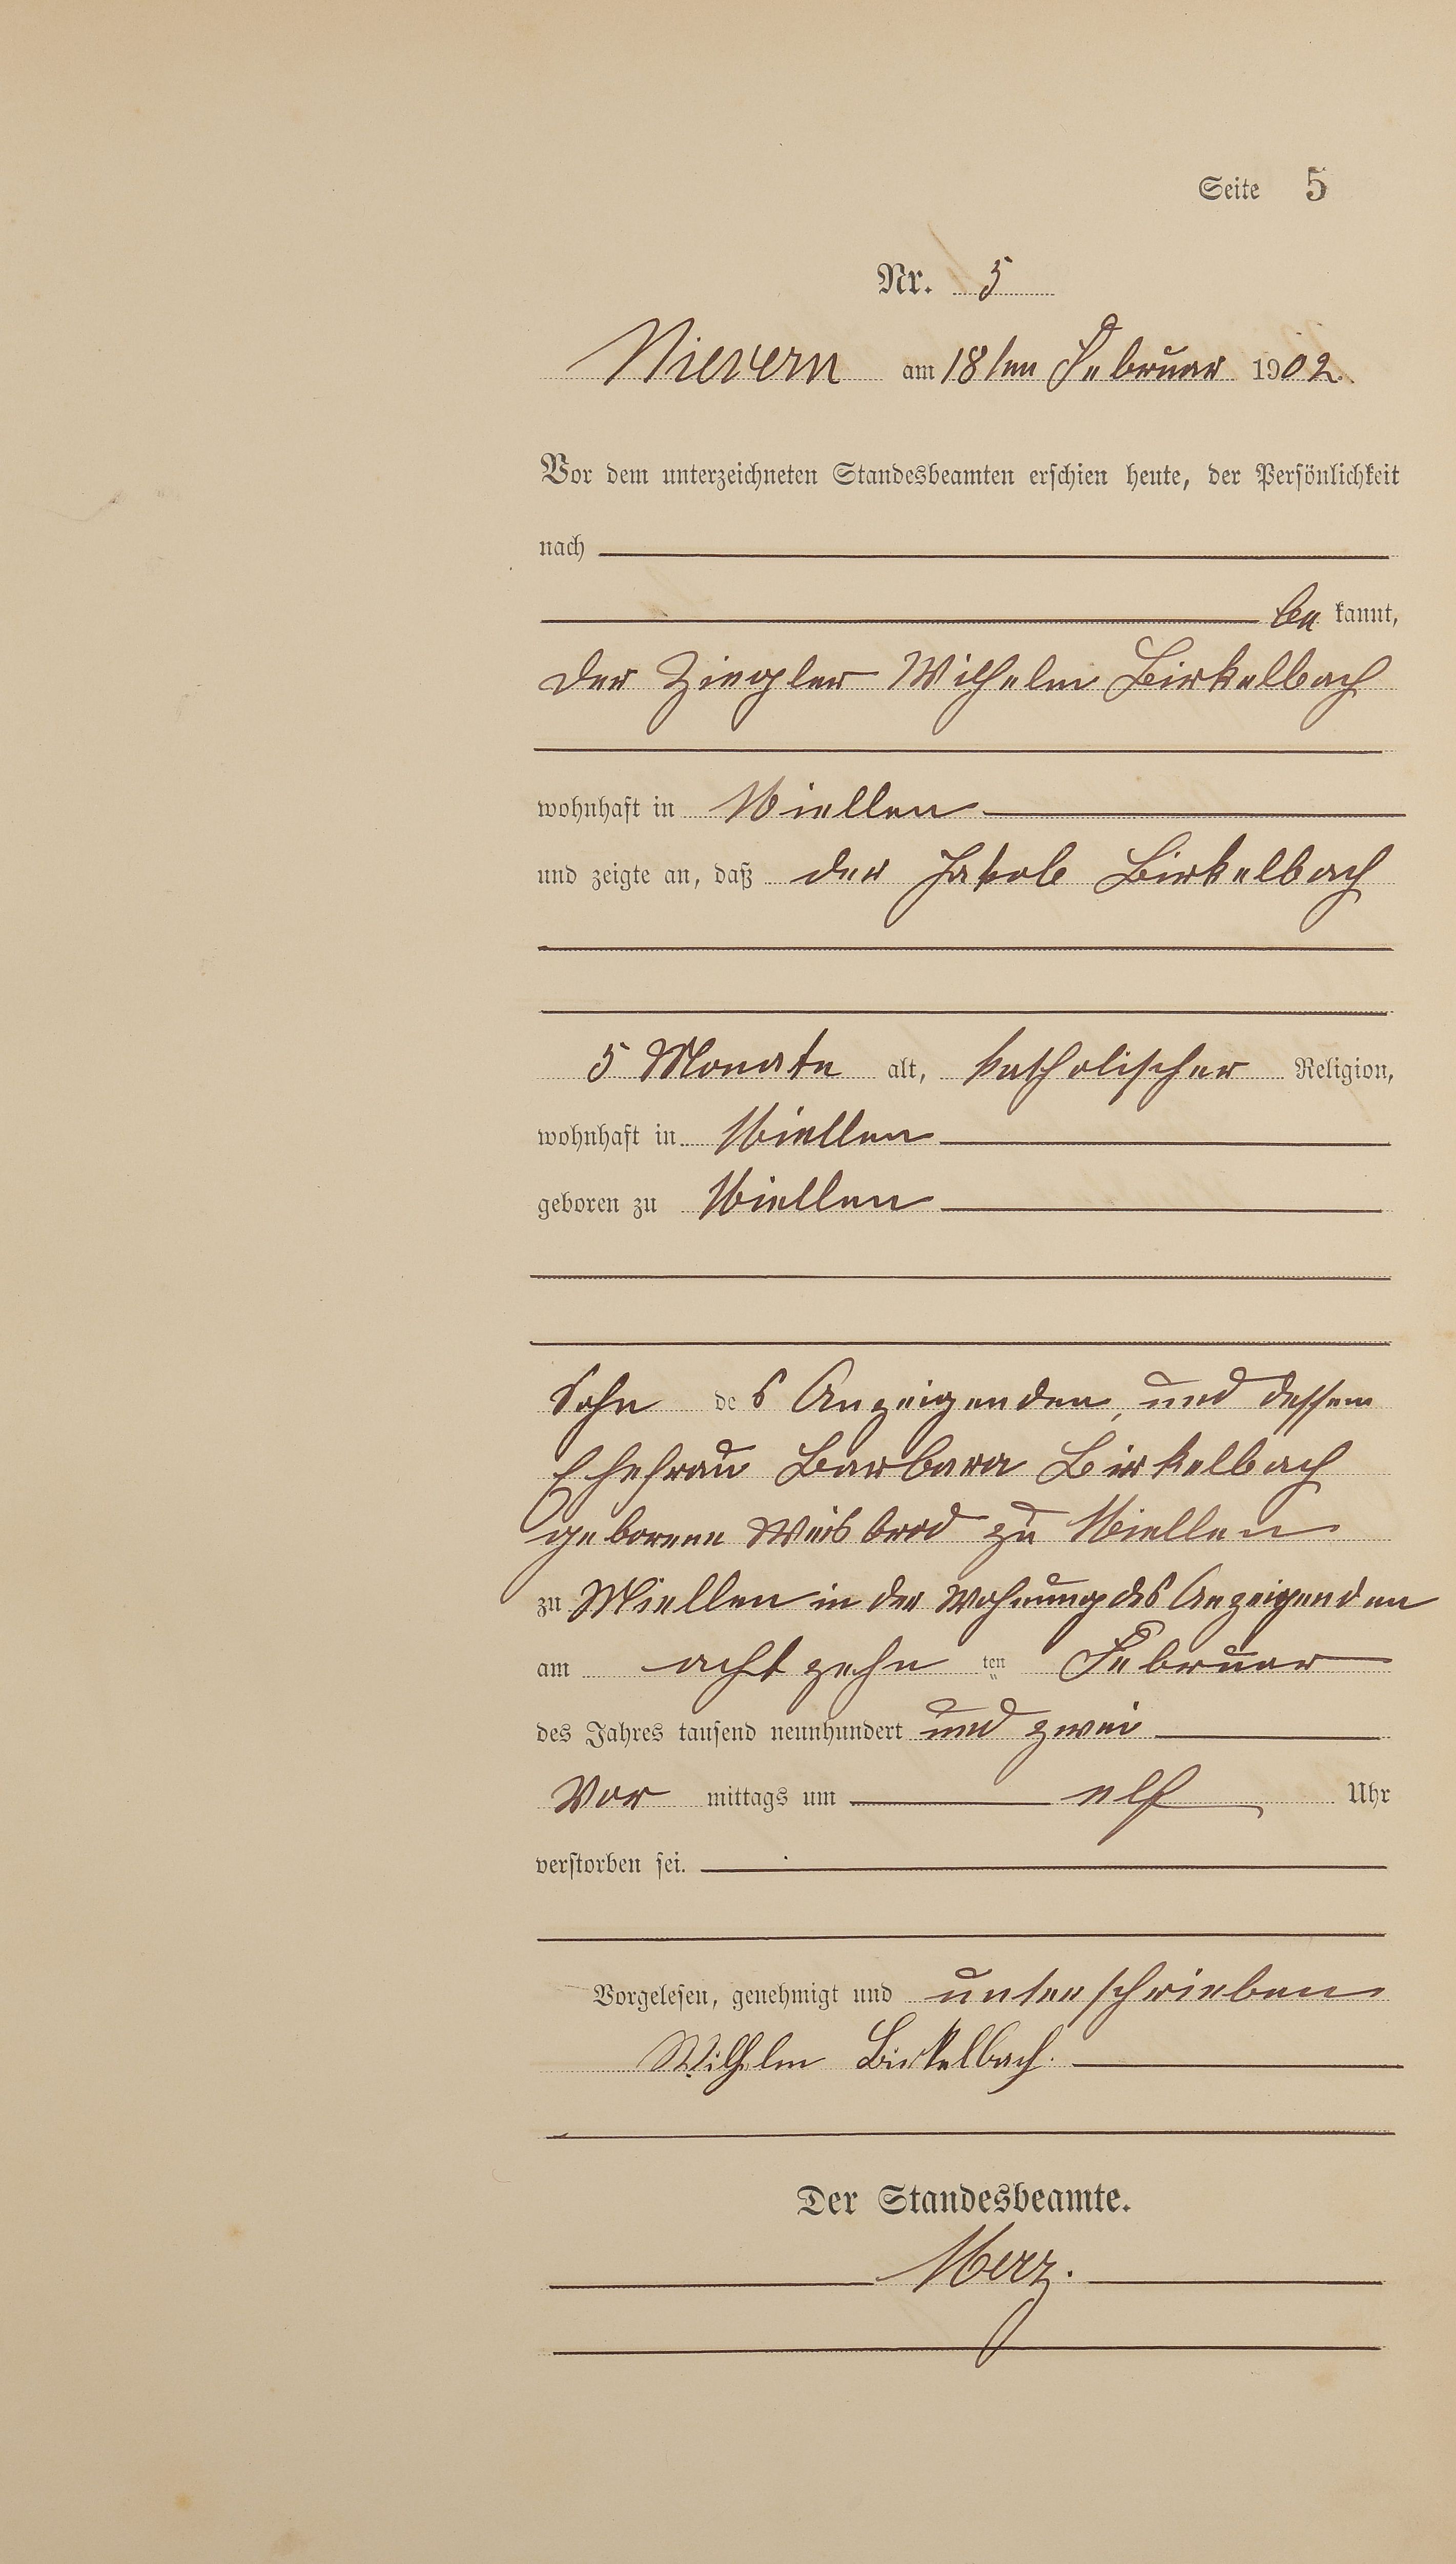 Seite 5
Nr. 5
Nievern am 18ten Februar 1902.
Vor dem unterzeichneten Standesbeamten erschien heute, der Persönlichkeit
nach
be kannt,
der Ziegler Wilhelm Birkelbach
wohnhaft in Miellen
und zeigte an, daß der Jakob Birkelbach
5 Monate alt, katholischer Religion,
wohnhaft in Miellen
geboren zu Miellen
Sohn des Anzeigenden, und dessen
Ehefrau Barbara Birkelbach
geborene Weisbrod zu Miellen
zu Miellen in der Wohnung des Anzeigenden
am achtzehn ten Februar
des Jahres tausend neunhundert und zwei
Vor mittags um elf Uhr
verstorben sei.
Vorgelesen, genehmigt und unterschrieben
Wilhelm Birkelbach.
Der Standesbeamte.
Merz.